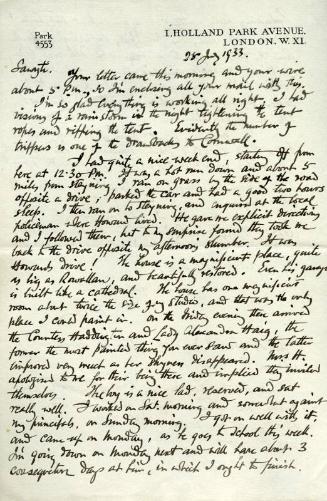 Park
4553
1, HOLLAND PARK AVENUE,
LONDON. W.XI.
25 July 1933.
Your letter came this morning and your wire
about 5 P.m., so I'm enclosing all your mail with this.
I'm so glad everything is working all right, I had
visions of a rainstorm in the night tightening the tent
ropes and ripping the tent. Evidently the number of
trippers is one of the drawbacks to Cornwall.
I had quite a nice week end, starting off from
here at 12.30 P.m. It was a hot run down and about 5
miles from Steyning I ran on grass by the side of the road
opposite a drive, parked the car and had a good two hours
sleep. I then ran on to Steyning, and inquired at the local
policeman where Howard lived. He gave me explicit directions
and I followed them, but to my surprise found they took me
back to the drive opposite my afternoon slumber. It was
Howards drive. The house is a magnificent place, quite
as big as Rowallan, and beautifully restored. Even his garage
is built like a cathedral. The house has one magnificent
room about twice the size of my studio, and that was the only
place I could paint in. On the Friday evening there arrived
the Countess Haddington and Lady Alexandra Haig, the
former the most painted thing you ever saw and the latter
improved very much as her shyness disappeared. Mrs H.
apologised to me for their being there and implied they invited
themselves. The boy is a nice lad, reserved, and sat
really well. I worked on Sat morning and somewhat against
my principals, on Sunday morning. I got on well with it,
and came up on Monday, as he goes to school this week.
I'm going down on Monday next and will have about 3
consecutive days at him, in which I ought to finish.